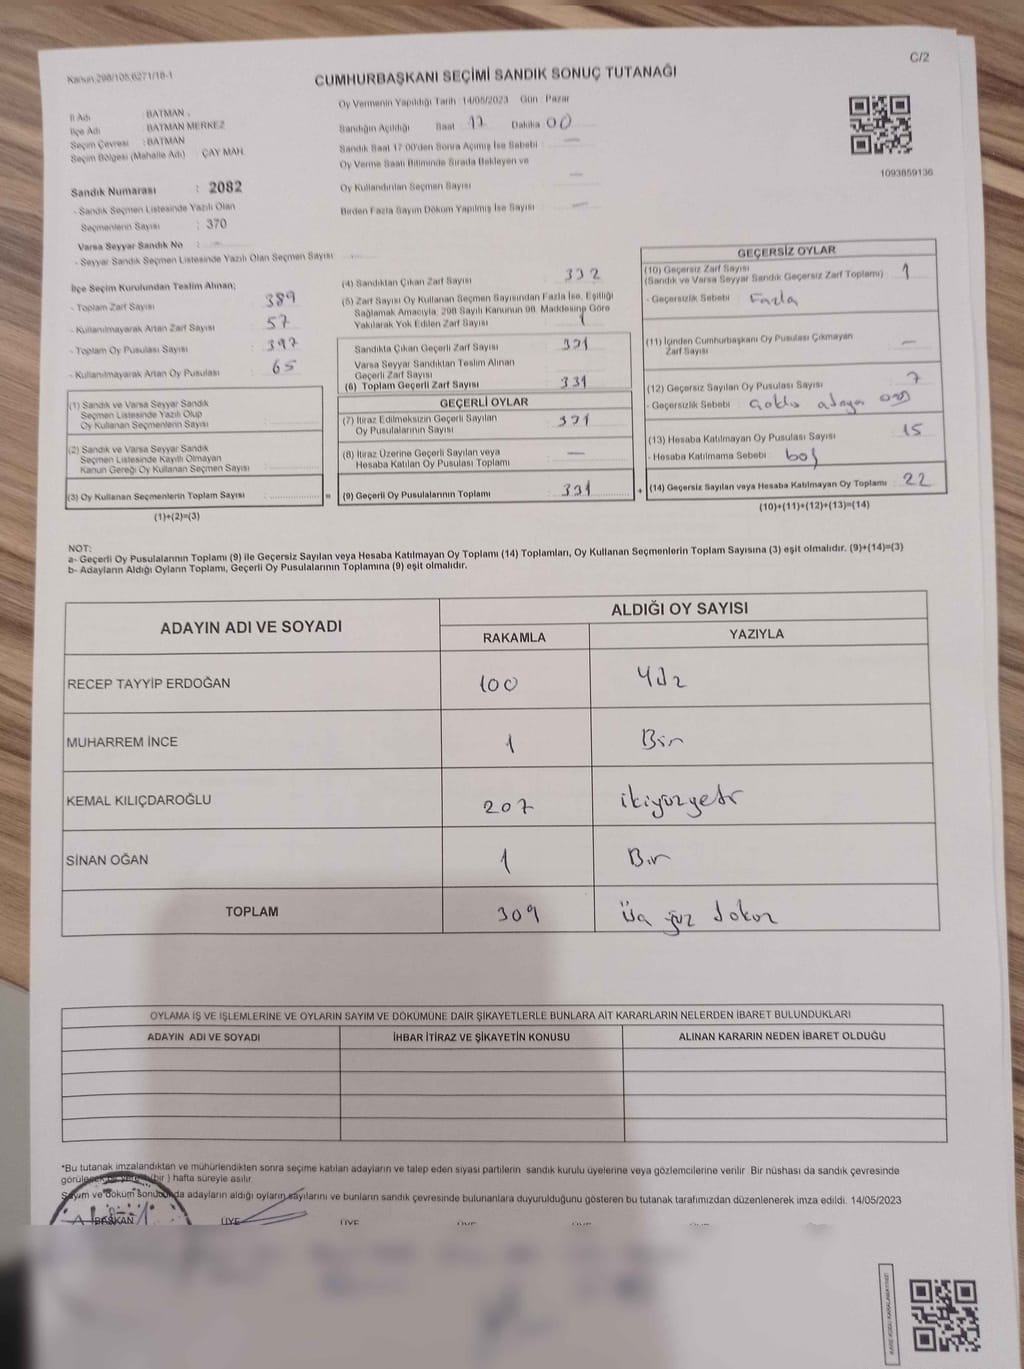 Kanun:298/105,6271/18-1
C/2
CUMHURBAŞKANI SEÇİMİ SANDIK SONUÇ TUTANAĞI
İl Adı : BATMAN
İlçe Adı : BATMAN MERKEZ
Seçim Çevresi : BATMAN
Seçim Bölgesi (Mahalle Adı) : ÇAY MAH.
Sandık Numarası : 2082
- Sandık Seçmen Listesinde Yazılı Olan
Seçmenlerin Sayısı : 370
Varsa Seyyar Sandık No : -
- Seyyar Sandık Seçmen Listesinde Yazılı Olan Seçmen Sayısı
Oy Vermenin Yapıldığı Tarih : 14/05/2023 Gün : Pazar
Sandığın Açıldığı Saat 17 Dakika 00
Sandık Saat 17:00'den Sonra Açımış İse Sebebi : —
Oy Verme Saati Bitiminde Sırada Bekleyen ve
Oy Kullandırılan Seçmen Sayısı —
Birden Fazla Sayım Döküm Yapılmış İse Sayısı : —
1093859136
İlçe Seçim Kurulundan Teslim Alınan;
- Toplam Zarf Sayısı : 389
- Kullanılmayarak Artan Zarf Sayısı : 57
- Toplam Oy Pusulası Sayısı : 397
- Kullanılmayarak Artan Oy Pusulası : 65
(1) Sandık ve Varsa Seyyar Sandık
Seçmen Listesinde Yazılı Olup
Oy Kullanan Seçmenlerin Sayısı :
(2) Sandık ve Varsa Seyyar Sandık
Seçmen Listesinde Kayıtlı Olmayan
Kanun Gereği Oy Kullanan Seçmen Sayısı :
(3) Oy Kullanan Seçmenlerin Toplam Sayısı : =
(1)+(2)=(3)
(4) Sandıktan Çıkan Zarf Sayısı : 332
(5) Zarf Sayısı Oy Kullanan Seçmen Sayısından Fazla İse, Eşitliği
Sağlamak Amacıyla, 298 Sayılı Kanunun 98. Maddesine Göre
Yakılarak Yok Edilen Zarf Sayısı : 1
Sandıkta Çıkan Geçerli Zarf Sayısı : 331
Varsa Seyyar Sandıktan Teslim Alınan
Geçerli Zarf Sayısı
(6) Toplam Geçerli Zarf Sayısı : 331
GEÇERLİ OYLAR
(7) İtiraz Edilmeksizin Geçerli Sayılan
Oy Pusulalarının Sayısı : 331
(8) İtiraz Üzerine Geçerli Sayılan veya
Hesaba Katılan Oy Pusulası Toplamı : —
(9) Geçerli Oy Pusulalarının Toplamı : 331 +
GEÇERSİZ OYLAR
(10) Geçersiz Zarf Sayısı
(Sandık ve Varsa Seyyar Sandık Geçersiz Zarf Toplamı) : 1
- Geçersizlik Sebebi : Fazla
(11) İçinden Cumhurbaşkanı Oy Pusulası Çıkmayan
Zarf Sayısı : —
(12) Geçersiz Sayılan Oy Pusulası Sayısı : 7
- Geçersizlik Sebebi :
(13) Hesaba Katılmayan Oy Pusulası Sayısı : 15
- Hesaba Katılmama Sebebi : boş
(14) Geçersiz Sayılan veya Hesaba Katılmayan Oy Toplamı : 22
(10)+(11)+(12)+(13)=(14)
NOT:
a- Geçerli Oy Pusulalarının Toplamı (9) ile Geçersiz Sayılan veya Hesaba Katılmayan Oy Toplamı (14) Toplamları, Oy Kullanan Seçmenlerin Toplam Sayısına (3) eşit olmalıdır. (9)+(14)=(3)
b- Adayların Aldığı Oyların Toplamı, Geçerli Oy Pusulalarının Toplamına (9) eşit olmalıdır.
ADAYIN ADI VE SOYADI
ALDIĞI OY SAYISI
RAKAMLA YAZIYLA
RECEP TAYYİP ERDOĞAN 100 Yüz
MUHARREM İNCE 1 Bir
KEMAL KILIÇDAROĞLU 207 ikiyüzyedi
SİNAN OĞAN 1 Bir
TOPLAM 309 Üç yüz dokuz
OYLAMA İŞ VE İŞLEMLERİNE VE OYLARIN SAYIM VE DÖKÜMÜNE DAİR ŞİKAYETLERLE BUNLARA AİT KARARLARIN NELERDEN İBARET BULUNDUKLARI
ADAYIN ADI VE SOYADI İHBAR İTİRAZ VE ŞİKAYETİN KONUSU ALINAN KARARIN NEDEN İBARET OLDUĞU
*Bu tutanak imzalandıktan ve mühürlendikten sonra seçime katılan adayların ve talep eden siyasi partilerin sandık kurulu üyelerine veya gözlemcilerine verilir. Bir nüshası da sandık çevresinde
görülecek bir yere 1 (bir ) hafta süreyle asılır.
Sayım ve döküm sonucunda adayların aldığı oyların sayılarını ve bunların sandık çevresinde bulunanlara duyurulduğunu gösteren bu tutanak tarafımızdan düzenlenerek imza edildi. 14/05/2023
BAŞKAN ÜYE ÜYE